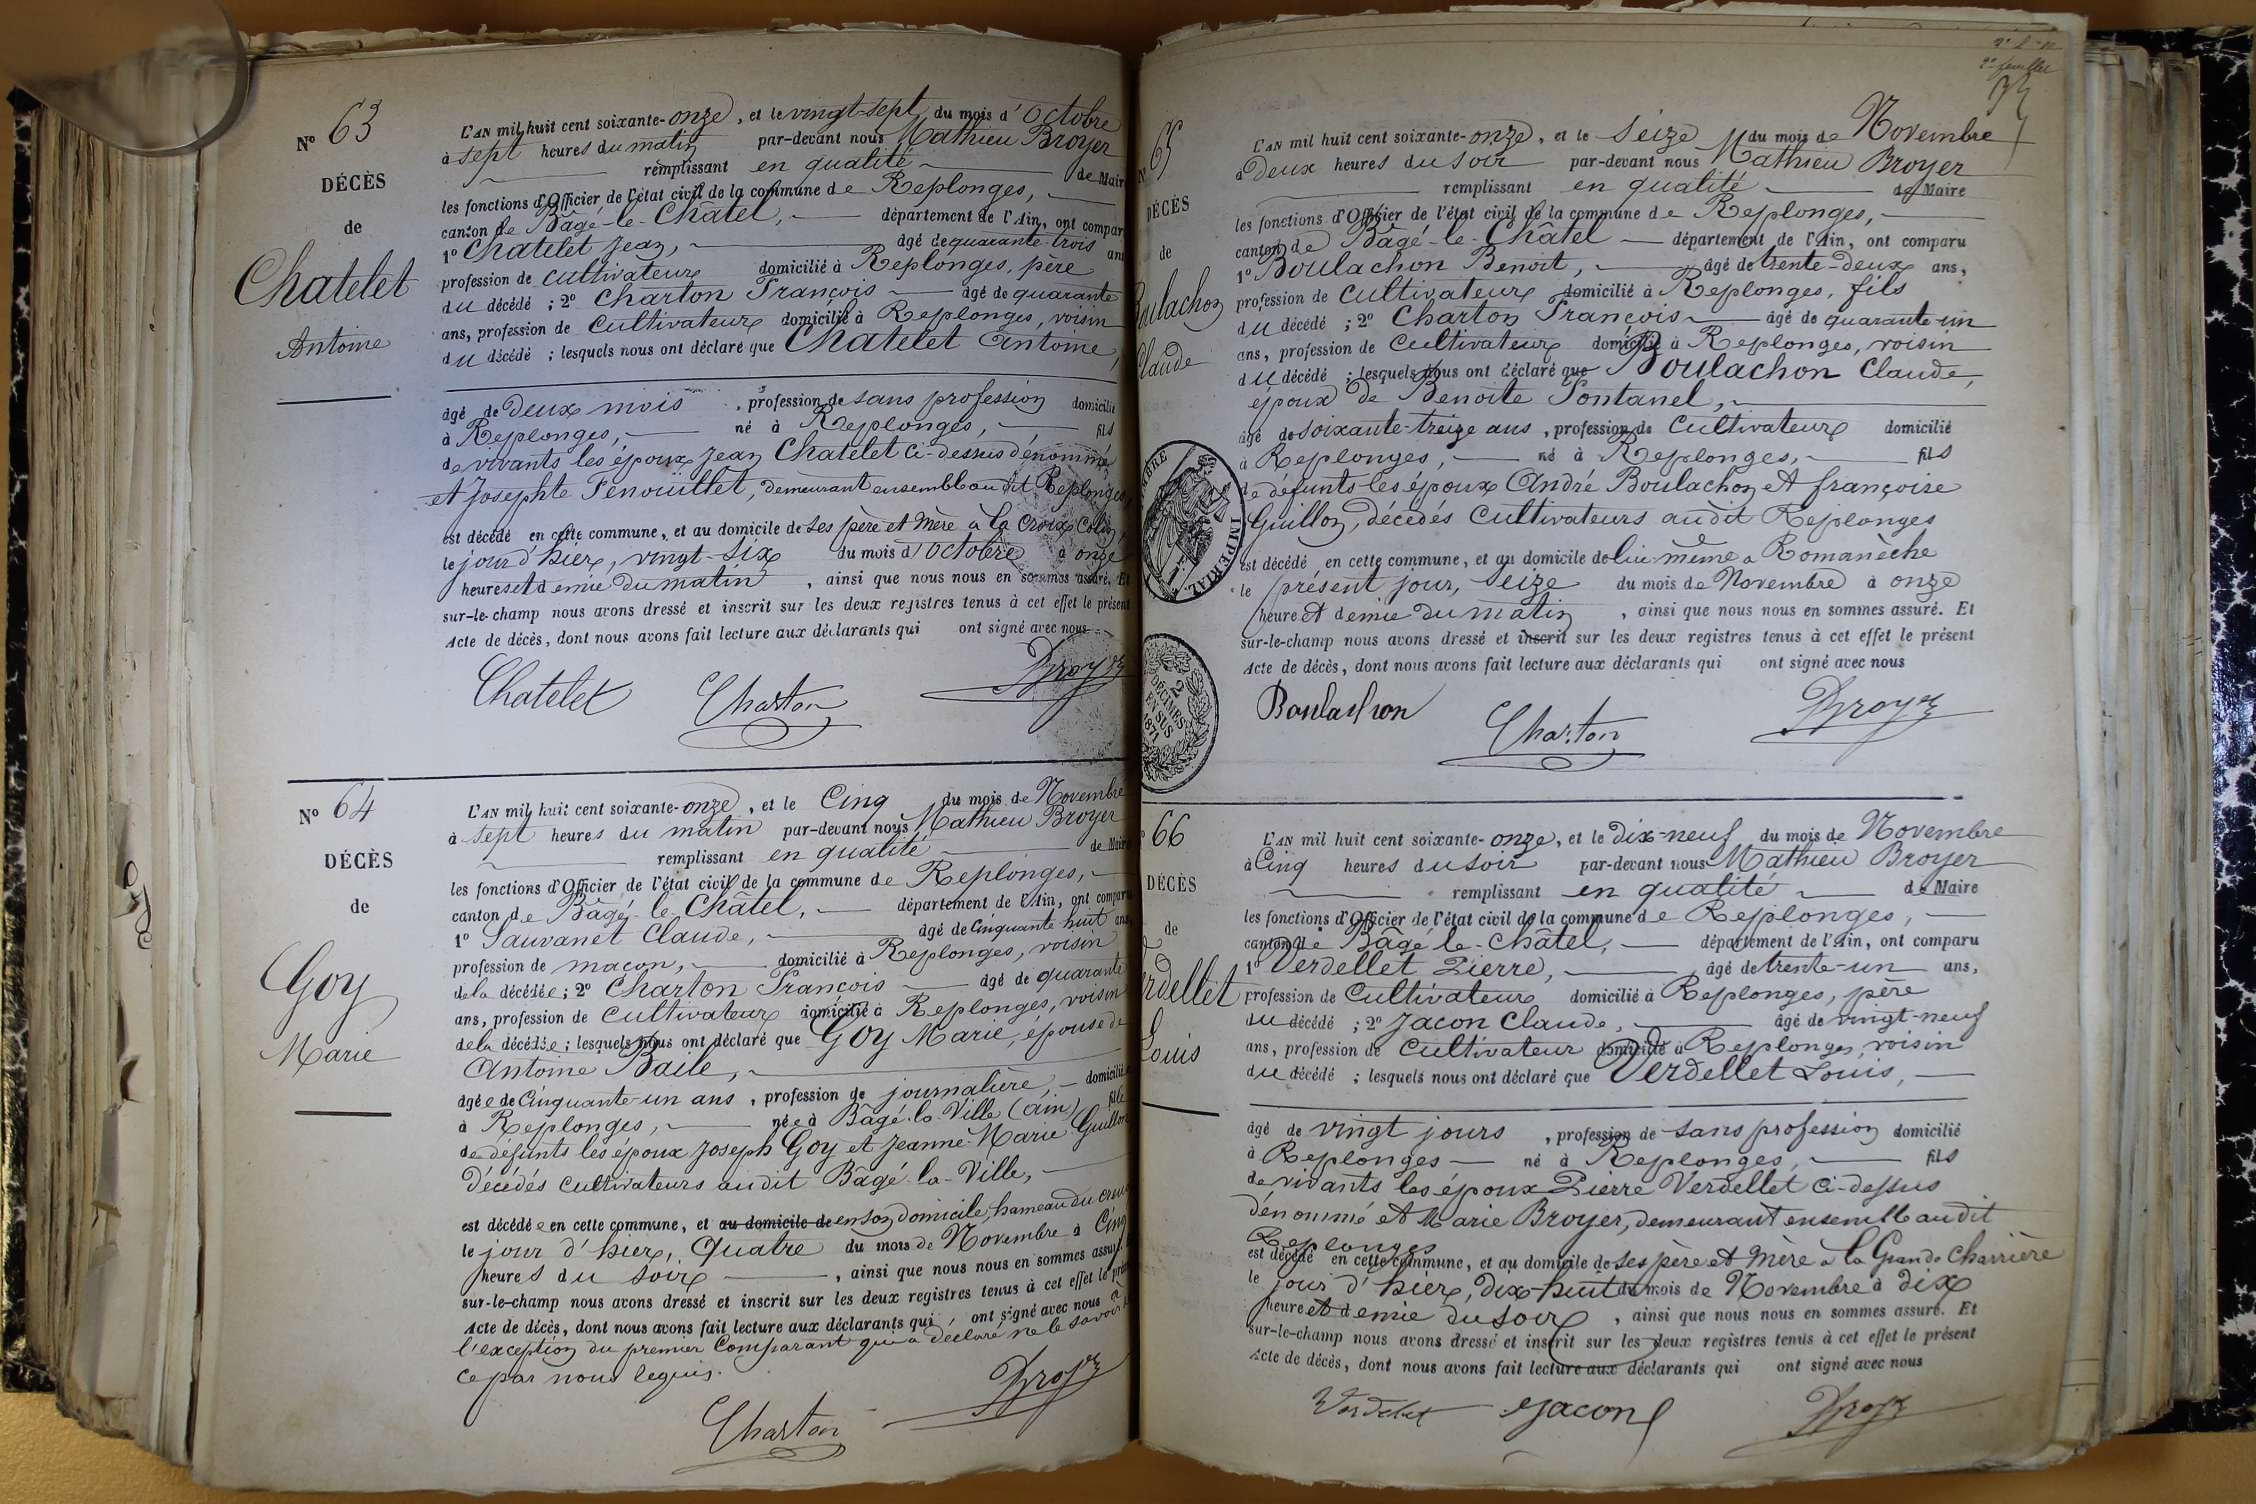 N° 63
DÉCÈS
de
Chatelet
Antoine
L'AN mil huit cent soixante-onze, et le vingt-sept du mois d'Octobre
à sept heures du matin par-devant nous Mathieu Broyer
remplissant en qualité de Mair
les fonctions d'Officier de l'état civil de la commune de Replonges,
canton de Bâgé-le-Châtel, département de l'Ain, ont compar
1° Chatelet Jean, âgé de quarante-trois ans
profession de cultivateur domicilié à Replonges, père
du décédé ; 2° Charton François âgé de quarante
ans, profession de Cultivateur domicilié à Replonges, voisin
du décédé ; lesquels nous ont déclaré que Chatelet Antoine,
âgé de deux mois, profession de sans profession domicilié
à Replonges, né à Replonges, fils
de vivants les époux Jean Chatelet ci-dessus dénommé,
et Josephte Fenouillet, demeurant ensemble audit Replonges,
est décédé en cette commune, et au domicile de ses père et mère à la Croix Colin,
le jour d'hier, vingt-six du mois d'Octobre à onze
heures et demie du matin, ainsi que nous nous en sommes assuré. Et
sur-le-champ nous avons dressé et inscrit sur les deux registres tenus à cet effet le présent
Acte de décès, dont nous avons fait lecture aux déclarants qui ont signé avec nous
Chatelet Charton Broyer
N° 64
DÉCÈS
de
Goy
Marie
L'AN mil huit cent soixante-onze, et le Cinq du mois de Novembre
à sept heures du matin par-devant nous Mathieu Broyer
remplissant en qualité de Maire
les fonctions d'Officier de l'état civil de la commune de Replonges,
canton de Bâgé-le-Châtel, département de l'Ain, ont comparu
1° Sauvanet Claude, âgé de Cinquante huit ans
profession de maçon, domicilié à Replonges, voisin
de la décédée ; 2° Charton François âgé de quarante
ans, profession de Cultivateur domicilié à Replonges, voisin
de la décédée ; lesquels nous ont déclaré que Goy Marie, épouse de
Antoine Baile,
âgée de Cinquante-un ans, profession de journalière, domiciliée
à Replonges, née à Bâgé-la-Ville (ain) fille
de défunts les époux Joseph Goy et Jeanne-Marie Guillon
décédés cultivateurs audit Bâgé-la-Ville,
est décédée en cette commune, et au domicile de en son domicile, hameau du creux
le jour d'hier, Quatre du mois de Novembre à Cinq
heures du soir, ainsi que nous nous en sommes assuré.
sur-le-champ nous avons dressé et inscrit sur les deux registres tenus à cet effet le prés
Acte de décès, dont nous avons fait lecture aux déclarants qui ont signé avec nous à
l'exception du premier Comparant qui a déclaré ne le savoir
ce par nous requis.
Charton Broyer
2e feuillet
N° 65
DÉCÈS
de
Boulachon
Claude
L'AN mil huit cent soixante-onze, et le Seize du mois de Novembre
à Deux heures du soir par-devant nous Mathieu Broyer
remplissant en qualité de Maire
les fonctions d'Officier de l'état civil de la commune de Replonges,
canton de Bâgé-le-Châtel département de l'Ain, ont comparu
1° Boulachon Benoit, âgé de trente-deux ans,
profession de Cultivateur domicilié à Replonges, fils
du décédé ; 2° Charton François âgé de quarante-un
ans, profession de Cultivateur domicilié à Replonges, voisin
du décédé ; lesquels nous ont déclaré que Boulachon Claude,
époux de Benoite Fontanel,
âgé de soixante-treize ans, profession de Cultivateur domicilié
à Replonges, né à Replonges, fils
de défunts les époux André Boulachon et françoise
Guillon, décédés Cultivateurs audit Replonges
est décédé en cette commune, et au domicile de lui-même à Romanèche
le présent jour, Seize du mois de Novembre à onze
heure et demie du matin, ainsi que nous nous en sommes assuré. Et
sur-le-champ nous avons dressé et inscrit sur les deux registres tenus à cet effet le présent
Acte de décès, dont nous avons fait lecture aux déclarants qui ont signé avec nous
Boulachon Charton Broyer
TIMBRE IMPERIAL
2 DÉCIMES EN SUS 1871
66
DÉCÈS
de
Verdellet
Louis
L'AN mil huit cent soixante-onze, et le dix-neuf du mois de Novembre
à Cinq heures du soir par-devant nous Mathieu Broyer
remplissant en qualité de Maire
les fonctions d'Officier de l'état civil de la commune de Replonges,
canton de Bâgé-le-Châtel, département de l'Ain, ont comparu
1° Verdellet Pierre, âgé de trente-un ans,
profession de Cultivateur domicilié à Replonges, père
du décédé ; 2° Jacon Claude, âgé de vingt-neuf
ans, profession de Cultivateur domicilié à Replonges, voisin
du décédé ; lesquels nous ont déclaré que Verdellet Louis,
âgé de vingt jours, profession de sans profession domicilié
à Replonges né à Replonges, fils
de vivants les époux Pierre Verdellet ci-dessus
dénommé et Marie Broyer, demeurant ensemble audit
Replonges
est décédé en cette commune, et au domicile de ses père et mère à la Grande Charrière
le jour d'hier, dix-huit du mois de Novembre à dix
heure et demie du soir, ainsi que nous nous en sommes assuré. Et
sur-le-champ nous avons dressé et inscrit sur les deux registres tenus à cet effet le présent
Acte de décès, dont nous avons fait lecture aux déclarants qui ont signé avec nous
Verdelet Jacon Broyer